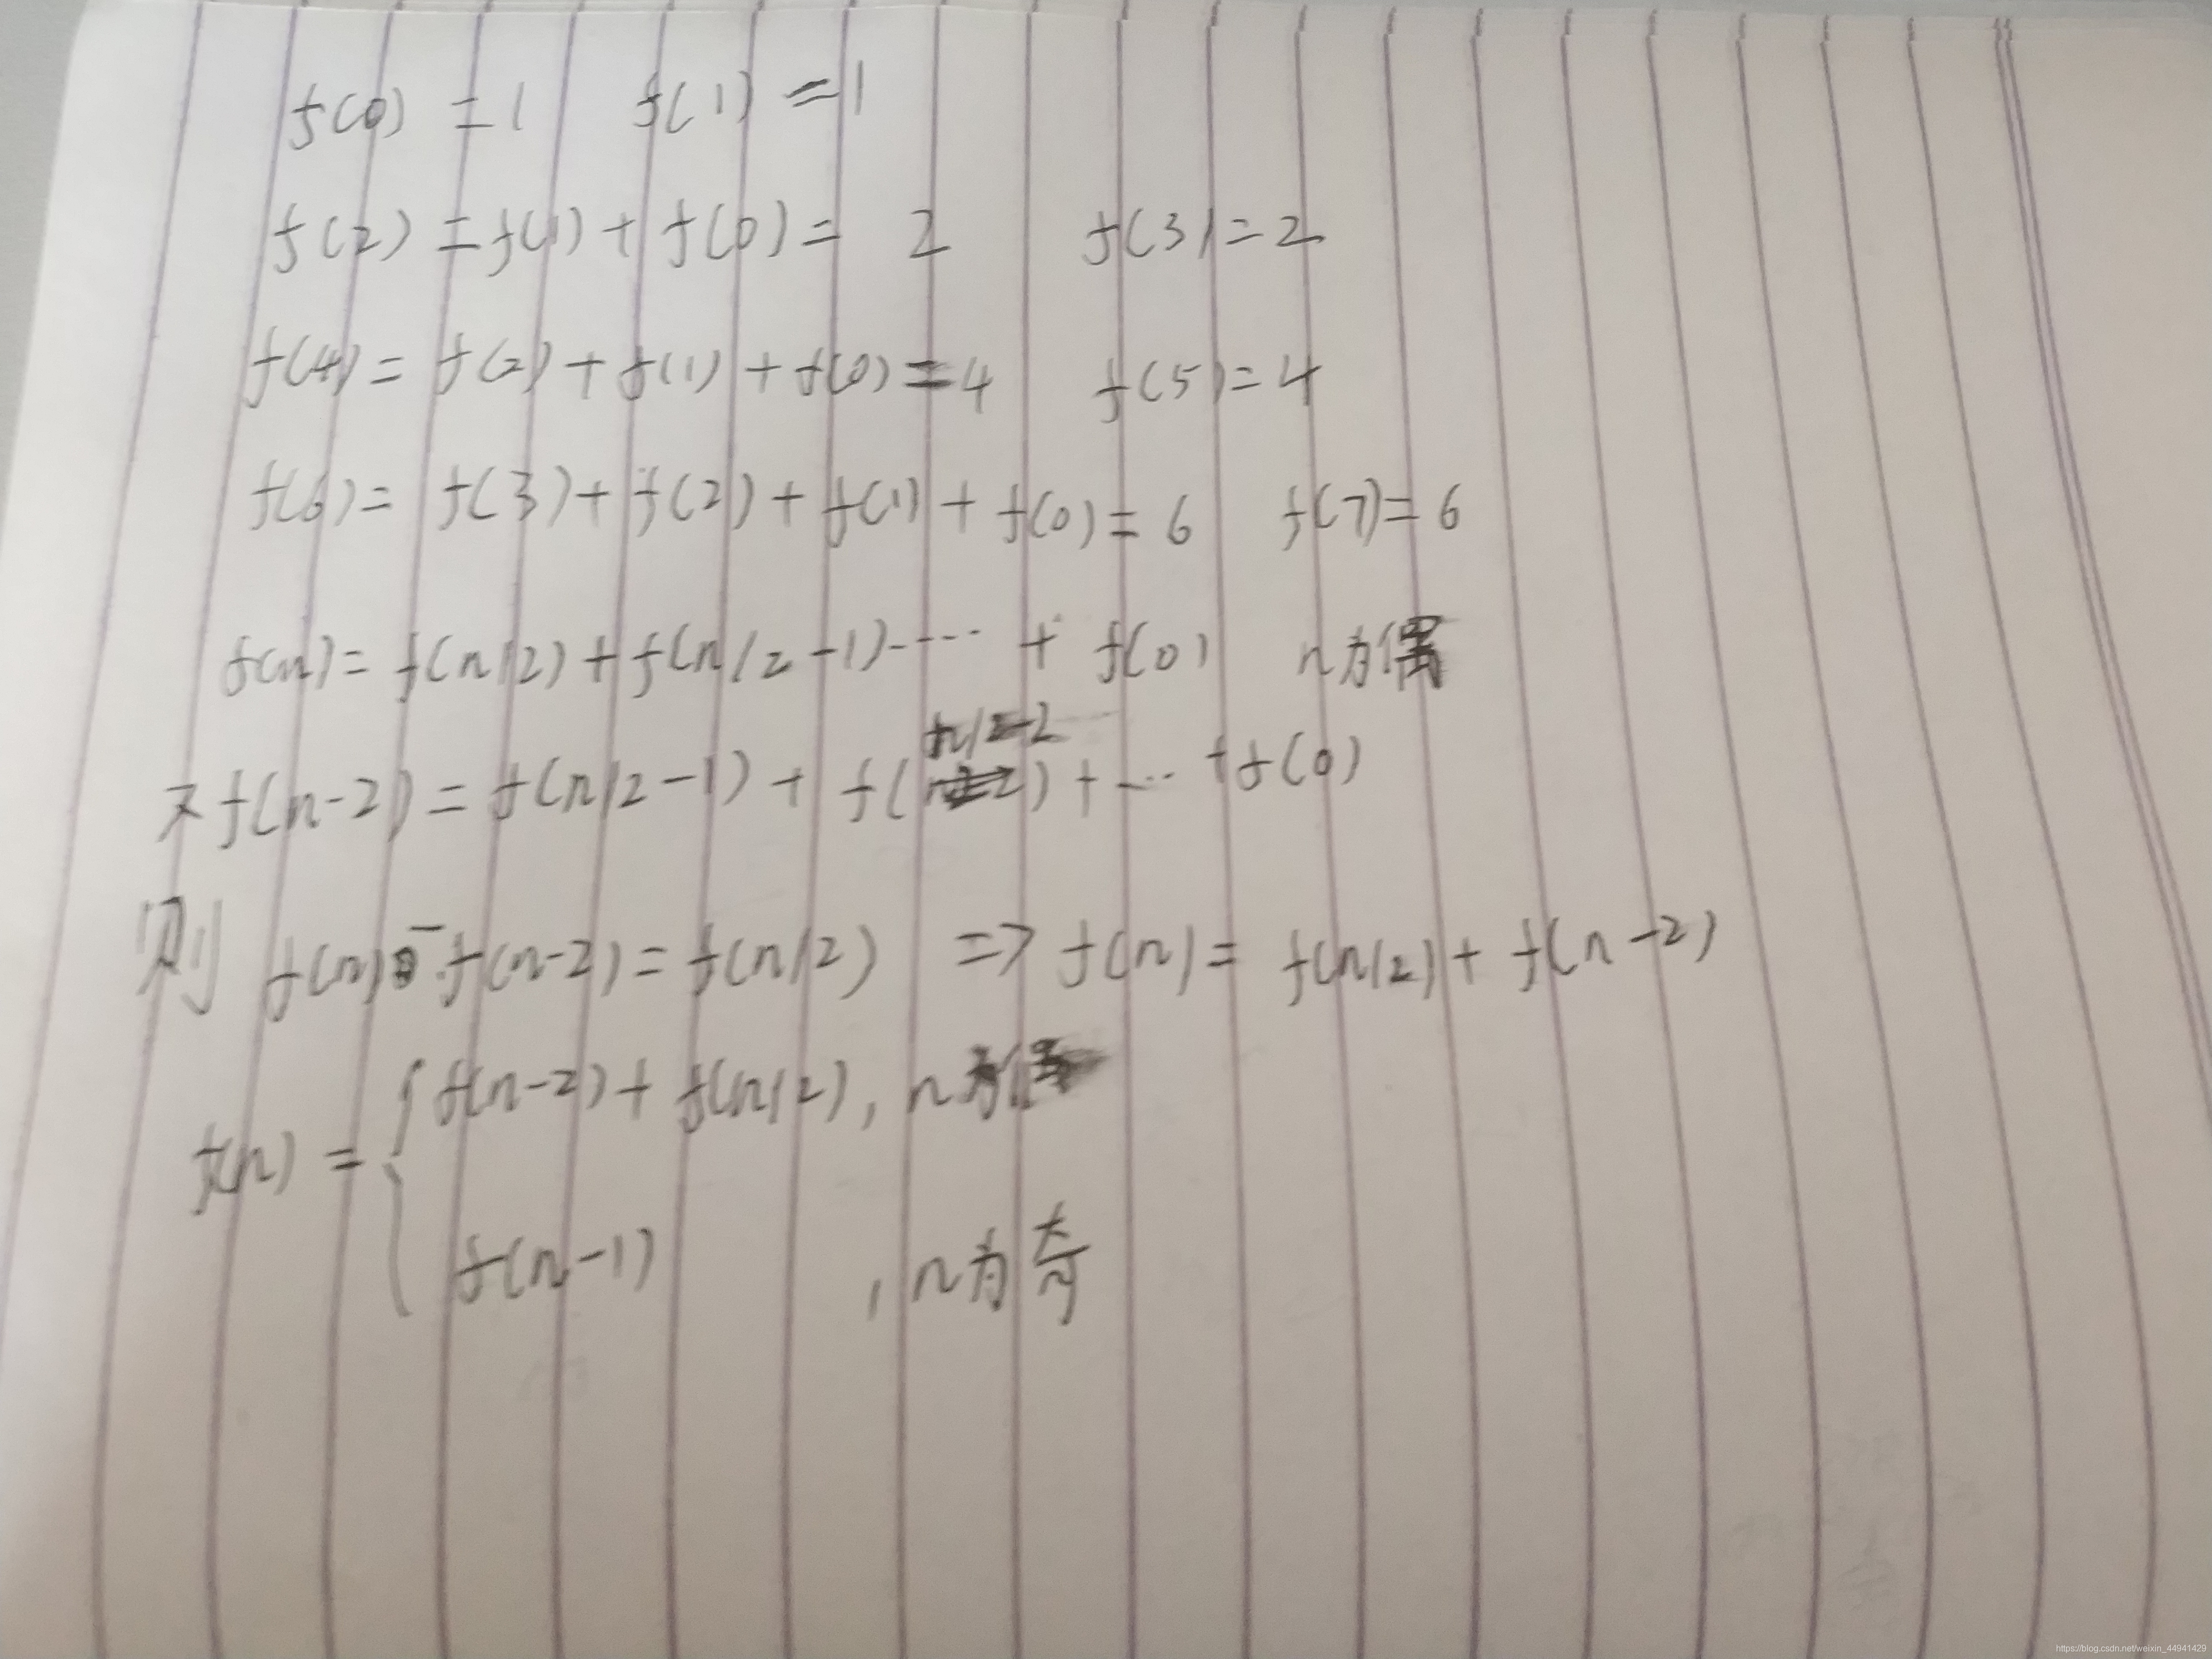 f(0) = 1 f(1) = 1
f(2) = f(1) + f(0) = 2 f(3) = 2
f(4) = f(2) + f(1) + f(0) = 4 f(5) = 4
f(6) = f(3) + f(2) + f(1) + f(0) = 6 f(7) = 6
f(n) = f(n/2) + f(n/2-1)····· + f(0) n为偶
又f(n-2) = f(n/2-1) + f(n/2-2) + ··· + f(0)
则 f(n) - f(n-2) = f(n/2) => f(n) = f(n/2) + f(n-2)
f(n) = { f(n-2) + f(n/2), n为偶
f(n-1) , n为奇
https://blog.csdn.net/weixin_44941429